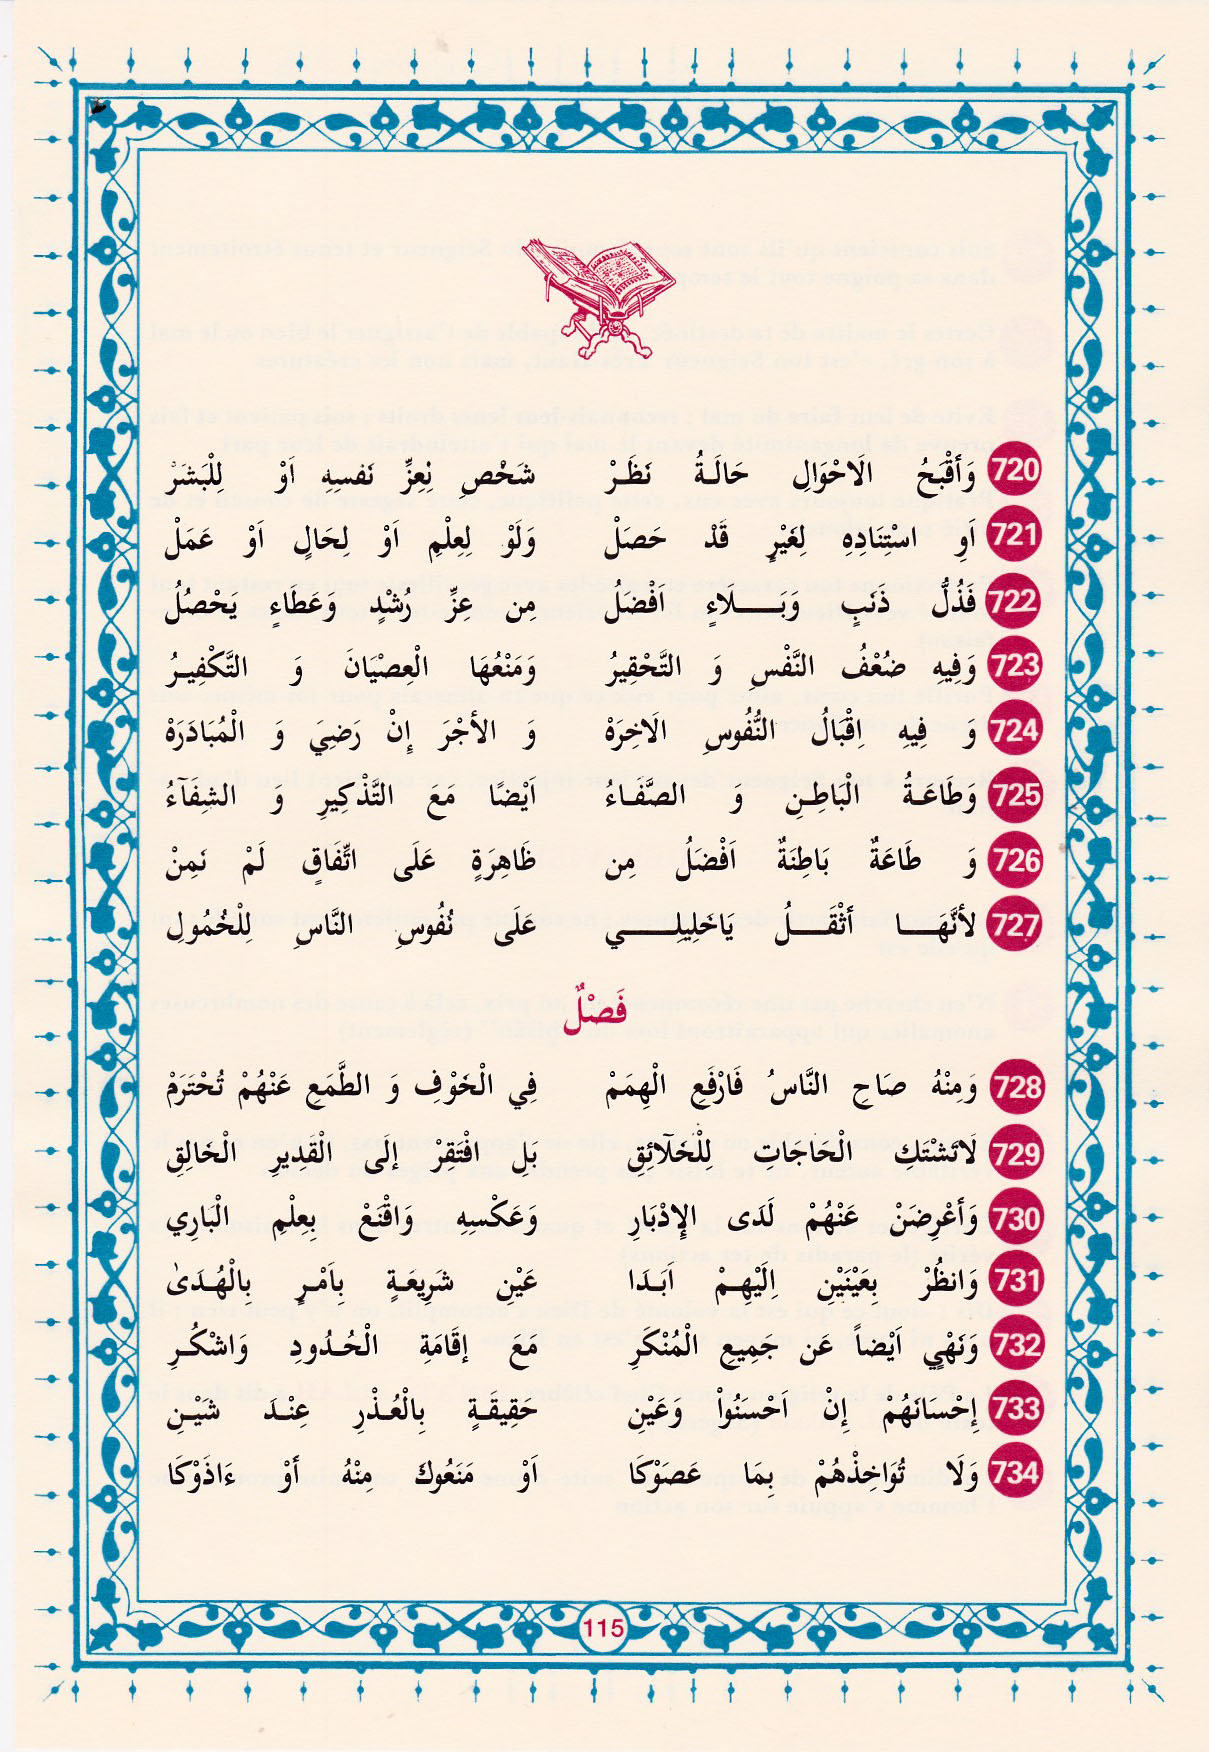 720 وَأَقْبَحُ الَاحْوَالِ حَالَةُ نَظَرْ شَخْصٍ لِعِزِّ نَفسِهِ اَوْ لِلْبَشَرْ
721 اَوِ اسْتِنَادِهِ لِغَيْرٍ قَدْ حَصَلْ وَلَوْ لِعِلْمٍ اَوْ لِحَالٍ اَوْ عَمَلْ
722 فَذُلُّ ذَنبٍ وَبَـــلَاءٍ اَفْضَلُ مِن عِزِّ رُشْدٍ وَعَطَاءٍ يَحْصُلُ
723 وَفِيهِ ضُعْفُ النَّفْسِ وَ التَّحْقِيرُ وَمَنْعُهَا الْعِصْيَانَ وَ التَّكْفِيـرُ
724 وَ فِيهِ اِقْبَالُ النُّفُوسِ الَاخِرَهْ وَ الأجْرَ إِنْ رَضِيَ وَ الْمُبَادَرَهْ
725 وَطَاعَـةُ الْبَاطِـنِ وَ الصَّفَـاءُ اَيْضًا مَعَ التَّذْكِيرِ وَ الشِفَآءُ
726 وَ طَاعَةٌ بَاطِنَةٌ اَفْضَلُ مِن ظَاهِرَةٍ عَلَى اتِّفَاقٍ لَمْ نَمِنْ
727 لأنَّهَـــا أَثْقَـــلُ يَاخَلِيلِـــــي عَلَى نُفُوسِ النَّاسِ لِلْخُمُولِ
فَصْلٌ
728 وَمِنْهُ صَاحِ النَّاسُ فَارْفَعِ الْهِمَمْ فِي الْخَوْفِ وَ الطَّمَعِ عَنْهُمْ تُحْتَرَمْ
729 لَاتَشْتَكِ الْحَاجَات لِلْخَلَآئِقِ بَلِ افْتَقِرْ إلَى الْقَدِيرِ الْخَالِقِ
730 وَأَعْرِضَنْ عَنْهُمْ لَدَى الإِدْبَارِ وَعَكْسِهِ وَاقْنَعْ بِعِلْمِ الْبَارِي
731 وَانظُرْ بِعَيْنَيْن اِلَيْهِـمْ اَبَـدَا عَيْن شَرِيعَـةٍ بِاَمْـرٍ بالْهُـدَىٰ
732 وَنَهْيٍ اَيْضاً عَن جَمِيعِ الْمُنْكَرِ مَعَ إقَامَةِ الْحُـدُودِ وَاشْكُـرِ
733 إحْسَانَهُمْ إِنْ اَحْسَنُواْ وَعَيْنِ حَقِيقَـةٍ بِالْعُـذْرِ عِنـدَ شَيْـنِ
734 وَلَا تُوَاخِذْهُمْ بِمَا عَصَوْكَا اَوْ مَنَعُوكَ مِنْهُ أَوْ ءَاذَوْكَا
115